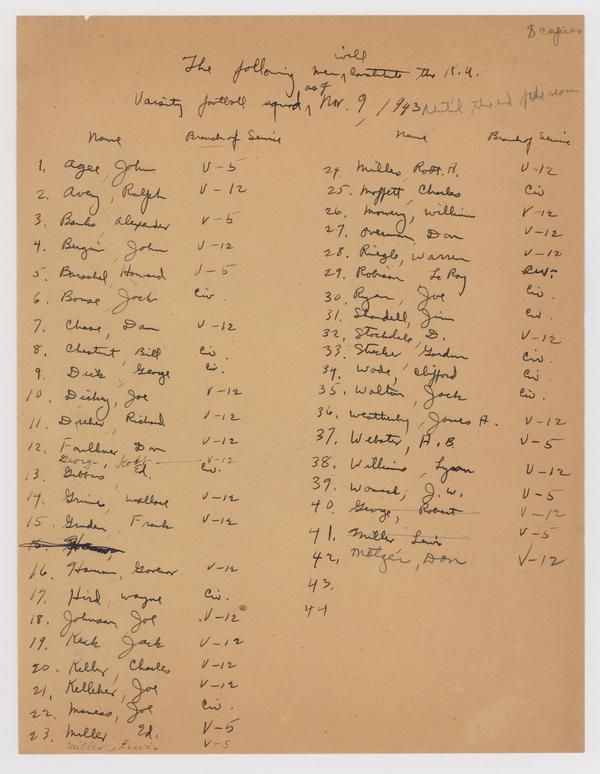 8 copies
will
The following men, constitute the K.U.
as of
Varsity football squad, Nov. 9, 1943 until the end of the
Name Branch of Service
1. Agee, John V-5
2. Avery, Ralph V-12
3. Banks, Alexander V-5
4. Bergin, John V-12
5. Howard V-5
6. Bouse, Jack Civ.
7. Chase, Dan V-12
8. Chestnut, Bill Civ.
9. Dick, George Civ.
10. Dickey, Joe V-12
11. Dreher, Richard V-12
12. Faulkner, Don V-12
George, Robt V-12
13. Gibbons, Ed. Civ.
14. Grimes, Wallace V-12
15. Frank V-12
16.
16. Governor V-12
17. Hird, Wayne Civ.
18. Johnson, Joe V-12
19. Keck, Jack V-12
20. Keller, Charles V-12
21. Kelleher, Joe V-12
22. Maness, Joe Civ.
23. Miller, Ed. V-5
Miller, Lewis V-5
Name Branch of Service
24. Miller, Robt. H. V-12
25. Moffett, Charles Civ
26. Mowery, William V-12
27. Overman, Don V-12
28. Riegle, Warren V-12
29. Robison, LeRoy Civ.
30. Ryan, Joe Civ.
31. Jim Civ.
32. Stockdale, D. V-12
33. Stucker, Gordon Civ.
34. Wade, Clifford Civ.
35. Walton, Jack Civ.
36. Weatherby, James H. V-12
37. Webster, H.B. V-5
38. Williams, Lyson V-12
39. Womack, J.W. V-5
40. George, Robert V-12
41. Miller Lewis V-5
42. Metzger, Don V-12
43.
44